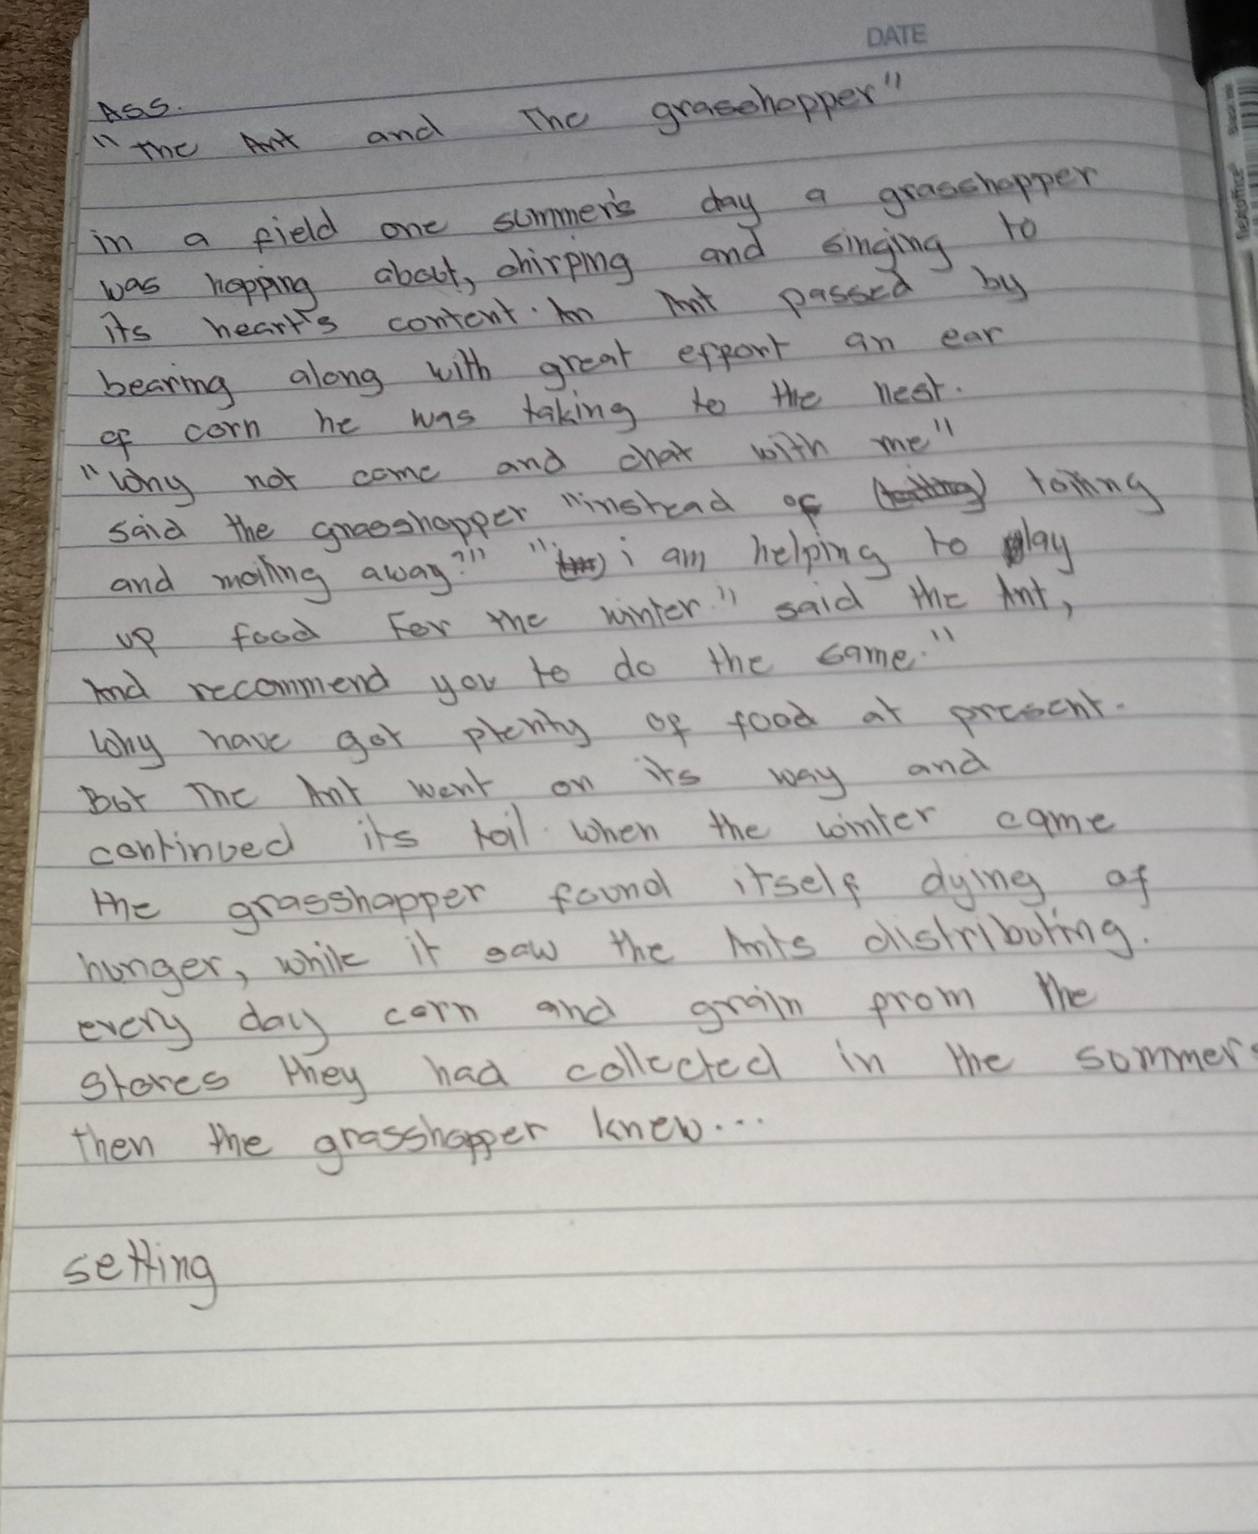 DATE
Ass.
"The Ant and The grasshopper"
in a field one summer's day a grasshopper
was hopping about, chirping and singing to
its heart's content. An Ant passed by
bearing along with great effort an ear
of corn he was taking to the nest.
"Why not come and chat with me"
said the grasshopper "instead of toiling
and moiling away?" " i am helping to play
up food For the winter." said the Ant,
And recommend you to do the same."
Why have got plenty of food at present.
But The Ant went on its way and
continued its toil. When the winter came
the grasshopper found itself dying of
hunger, while it saw the Ants distributing.
every day corn and grain from the
stores they had collected in the summer.
then the grasshopper knew...
setting